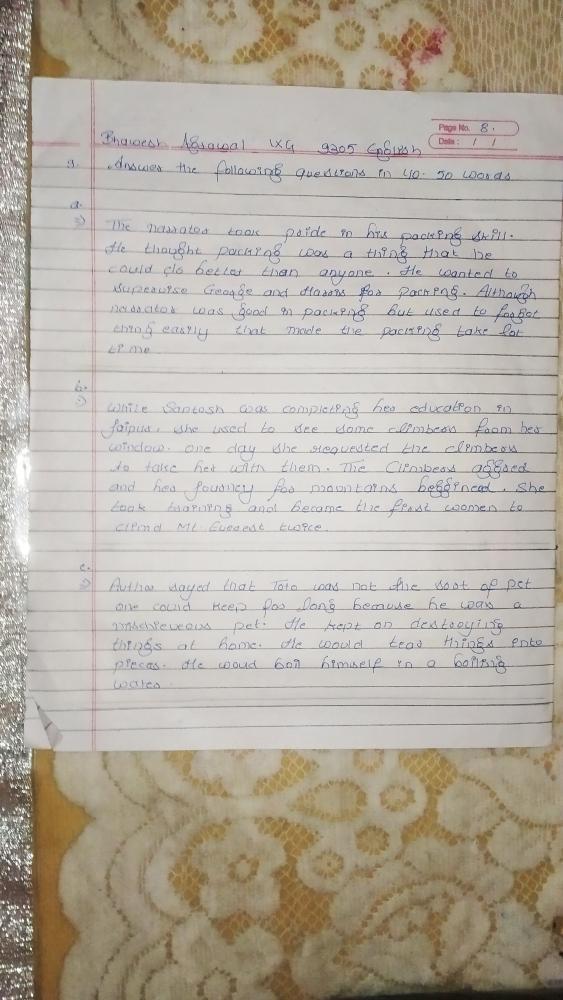 Page No. 8.
Date : / /
Bhavesh Agrawal IXG 9305 English
9. Answer the following questions in 40-50 words
a.
⇒ The narrator took pride in his packing skill.
He thought packing was a thing that he
could do better than anyone. He wanted to
superwise George and Harris for packing. Although
narrator was good in packing but used to forgot
thing easily that made the packing take lot
time.
b.
⇒ While Santosh was completing her education in
Jaipur, she used to see some climbers from her
window. one day she requested the climbers
to take her with them. The Climbers aggred
and her journey for mountains beggined. She
took training and became the first women to
climd Mt. Everest twice.
c.
⇒ Author sayed that Toto was not the sort of pet
one could keep for long because he was a
mischieveous pet. He kept on destroying
things at home. He would tear things into
pieces. He woud boil himself in a boiling
water.